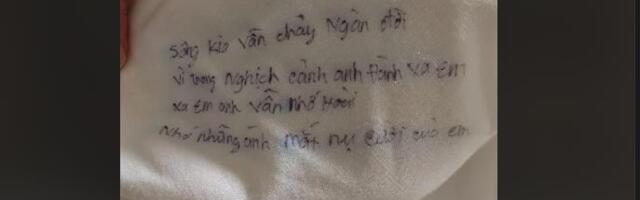 sông kia vẫn chảy Ngàn đời
vì trong nghịch cảnh anh đành xa em
xa em anh vẫn nhớ
Nhớ những ánh mắt nụ cười của em